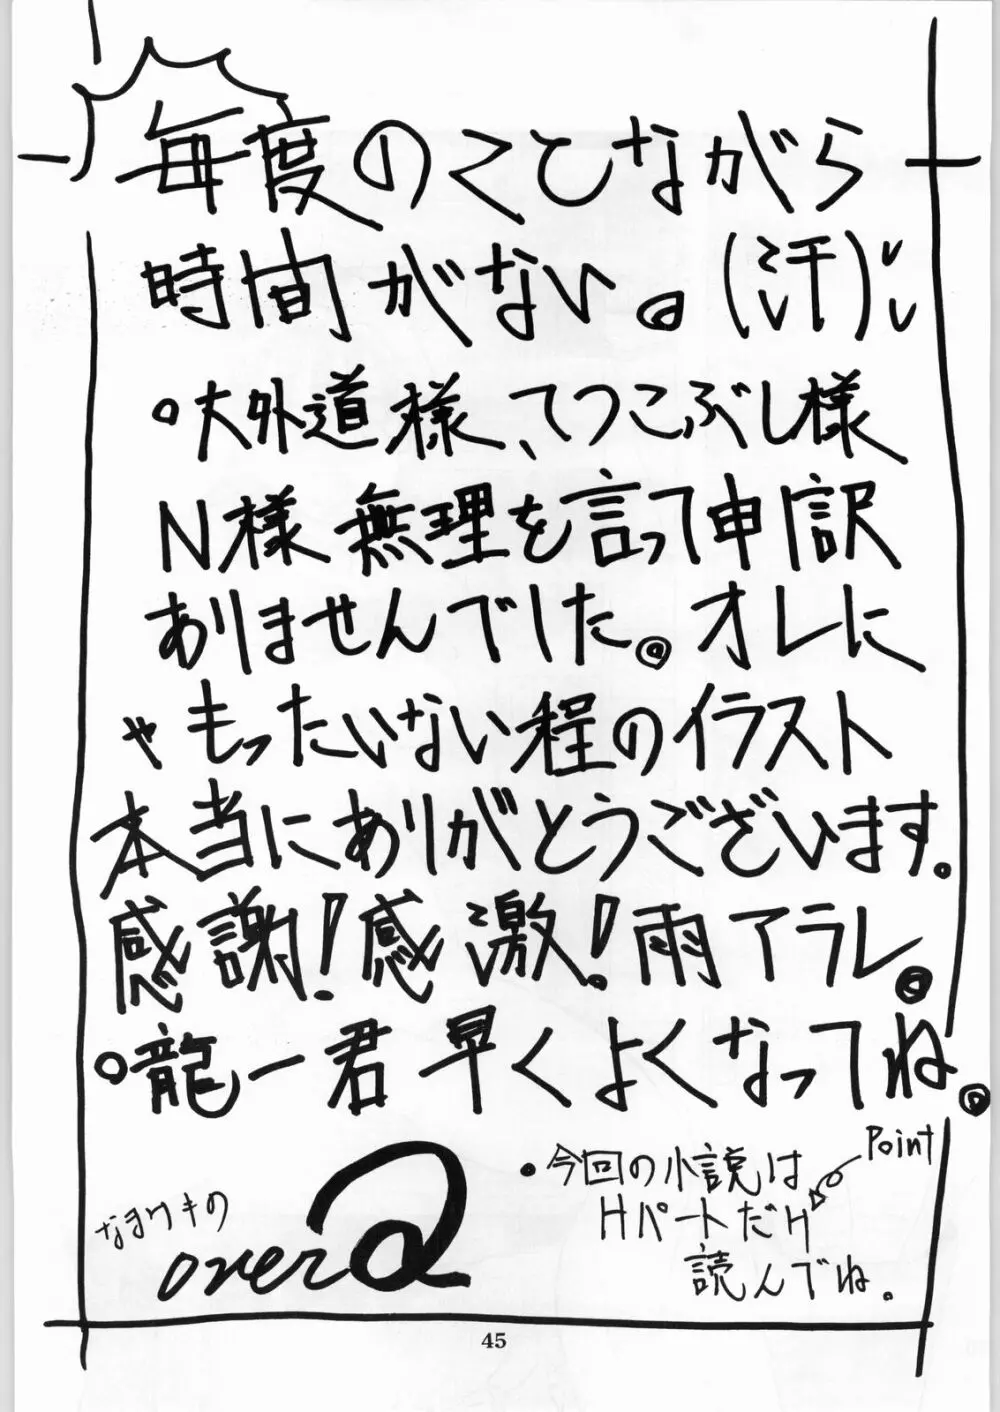 毎度のことながら
時間がない。(汗)
。大外道様、てつこぶし様
N様 無理を言って申し訳
ありませんでした。オレに
ゃもったいない程のイラスト
本当にありがとうございます。
感謝!感激!雨アラレ。
。龍一君 早くよくなってね。
over
・今回の小説は
Point
Hパートだけ
読んでね。
45